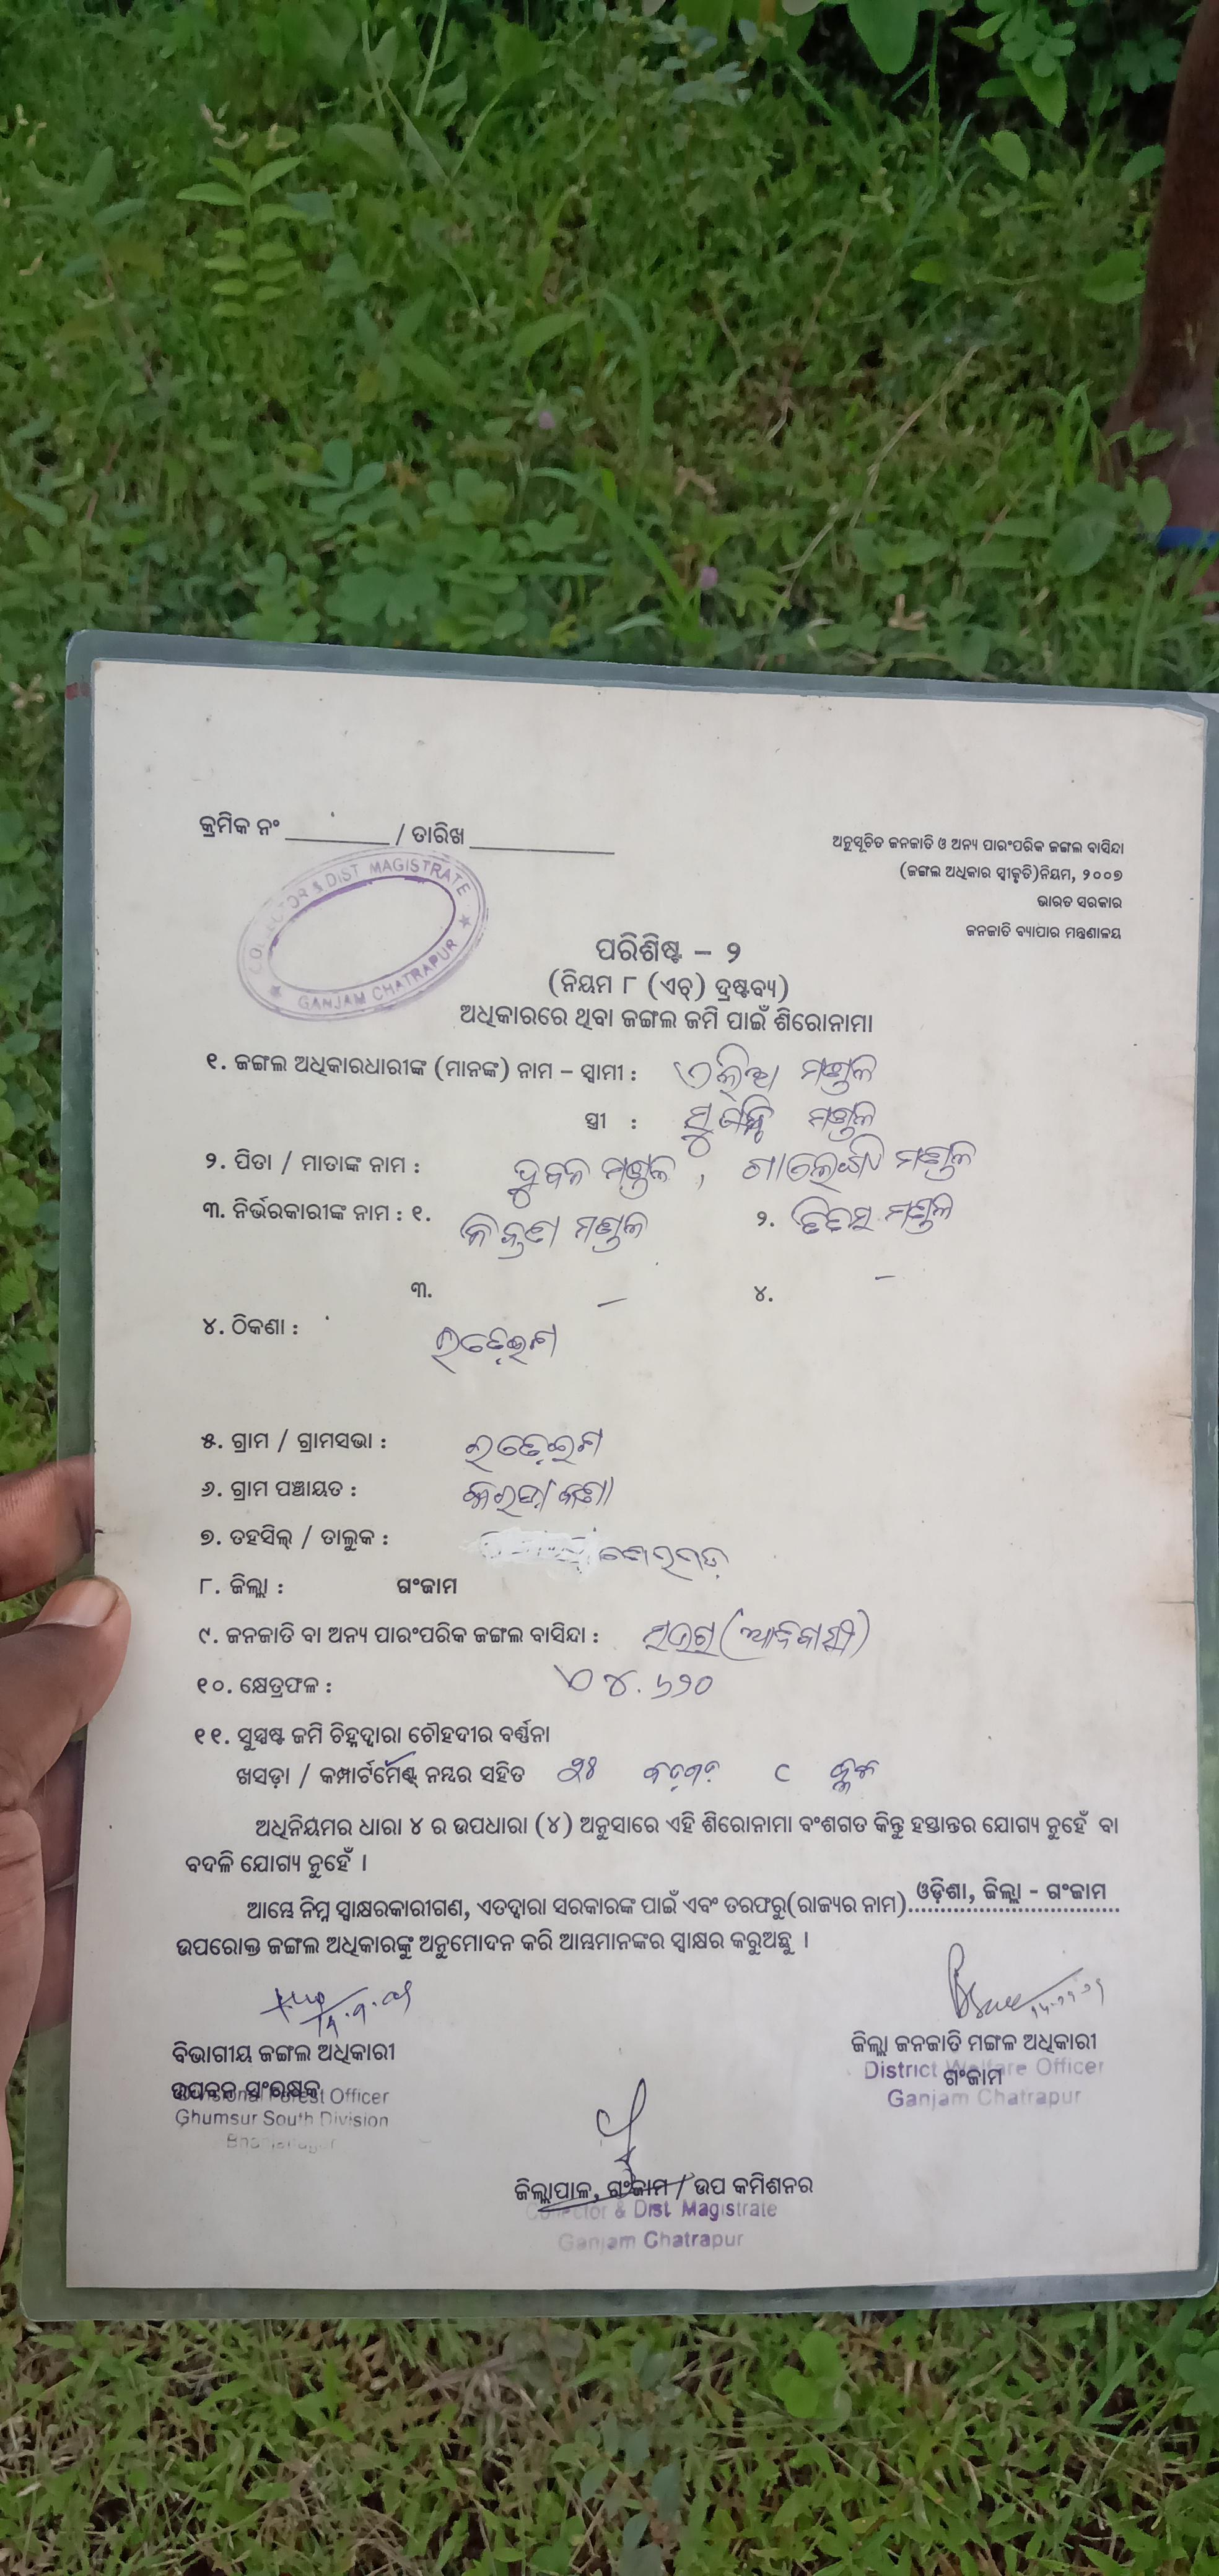 କ୍ରମିକ ନଂ ________ / ତାରିଖ ___________
ଅନୁସୂଚିତ ଜନଜାତି ଓ ଅନ୍ୟ ପାରଂପରିକ ଜଙ୍ଗଲ ବାସିନ୍ଦା
(ଜଙ୍ଗଲ ଅଧିକାର ସ୍ବୀକୃତି)ନିୟମ, ୨୦୦୭
ଭାରତ ସରକାର
ଜନଜାତି ବ୍ୟାପାର ମନ୍ତ୍ରଣାଳୟ
COLLECTOR & DIST MAGISTRATE
GANJAM CHATRAPUR
ପରିଶିଷ୍ଟ – ୨
(ନିୟମ ୮ (ଏଚ୍) ଦ୍ରଷ୍ଟବ୍ୟ)
ଅଧିକାରରେ ଥିବା ଜଙ୍ଗଲ ଜମି ପାଇଁ ଶିରୋନାମା
୧. ଜଙ୍ଗଲ ଅଧିକାରଧାରୀଙ୍କ (ମାନଙ୍କ) ନାମ – ସ୍ବାମୀ : ଏଲିଅ ମଣ୍ଡଳ
ସ୍ତ୍ରୀ : ମଣ୍ଡଳ
୨. ପିତା / ମାତାଙ୍କ ନାମ : ମଣ୍ଡଳ , ମଣ୍ଡଳ
୩. ନିର୍ଭରକାରୀଙ୍କ ନାମ : ୧. ମଣ୍ଡଳ ୨. ମଣ୍ଡଳ
୩. – ୪. –
୪. ଠିକଣା :
୫. ଗ୍ରାମ / ଗ୍ରାମସଭା :
୬. ଗ୍ରାମ ପଞ୍ଚାୟତ :
୭. ତହସିଲ୍ / ତାଲୁକ :
୮. ଜିଲ୍ଲା : ଗଂଜାମ
୯. ଜନଜାତି ବା ଅନ୍ୟ ପାରଂପରିକ ଜଙ୍ଗଲ ବାସିନ୍ଦା : (ଆଦିବାସୀ)
୧୦. କ୍ଷେତ୍ରଫଳ : ଏ ୪.୬୨୦
୧୧. ସୁସ୍ପଷ୍ଟ ଜମି ଚିହ୍ନଦ୍ୱାରା ଚୌହଦୀର ବର୍ଣ୍ଣନା
ଖସଡ଼ା / କମ୍ପାର୍ଟମେଣ୍ଟ୍ ନମ୍ବର ସହିତ
ଅଧିନିୟମର ଧାରା ୪ ର ଉପଧାରା (୪) ଅନୁସାରେ ଏହି ଶିରୋନାମା ବଂଶଗତ କିନ୍ତୁ ହସ୍ତାନ୍ତର ଯୋଗ୍ୟ ନୁହେଁ ବା
ବଦଳି ଯୋଗ୍ୟ ନୁହେଁ ।
ଆମ୍ଭେ ନିମ୍ନ ସ୍ୱାକ୍ଷରକାରୀଗଣ, ଏତଦ୍ୱାରା ସରକାରଙ୍କ ପାଇଁ ଏବଂ ତରଫରୁ(ରାଜ୍ୟର ନାମ) ଓଡ଼ିଶା, ଜିଲ୍ଲା - ଗଂଜାମ
ଉପରୋକ୍ତ ଜଙ୍ଗଲ ଅଧିକାରଙ୍କୁ ଅନୁମୋଦନ କରି ଆମ୍ଭମାନଙ୍କର ସ୍ୱାକ୍ଷର କରୁଅଛୁ ।
ବିଭାଗୀୟ ଜଙ୍ଗଲ ଅଧିକାରୀ
ଉପବନ ସଂରକ୍ଷକ
Divisional Forest Officer
Ghumsur South Division
ଜିଲ୍ଲା ଜନଜାତି ମଙ୍ଗଳ ଅଧିକାରୀ
ଗଂଜାମ
District Welfare Officer
Ganjam Chatrapur
ଜିଲ୍ଲାପାଳ, ଗଂଜାମ / ଉପ କମିଶନର
Collector & Dist. Magistrate
Ganjam Chatrapur